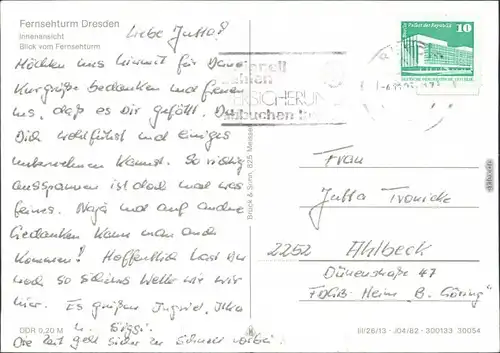 Fernsehturm Dresden
Innenansicht
Blick vom Fernsehturm
Liebe Jutta!
Möchten uns hiermit für Deine
Kurgrüße bedanken und freuen
uns, daß es Dir gefällt, Du
Dich wohlfühlst und einiges
unternehmen kannst. So richtig
ausspannen ist doch mal was
feines. Naja und auf andere
Gedanken kann man auch
kommen! Hoffentlich hast Du
noch so schönes Wetter wie wir
hier. Es grüßen Ingrid,
u. Siggi.
Die Zeit geht sicher zu schnell vorbei!
DDR 0,20 M
Brück & Sohn, 825 Meissen
VERSICHERUN
buchen
Palast der Republik
10
Frau
Jutta Tronicke
2252 Ahlbeck
Dünenstraße 47
FDGB-Heim "B. Göring"
III/26/13 - J04/82 - 300133 30054